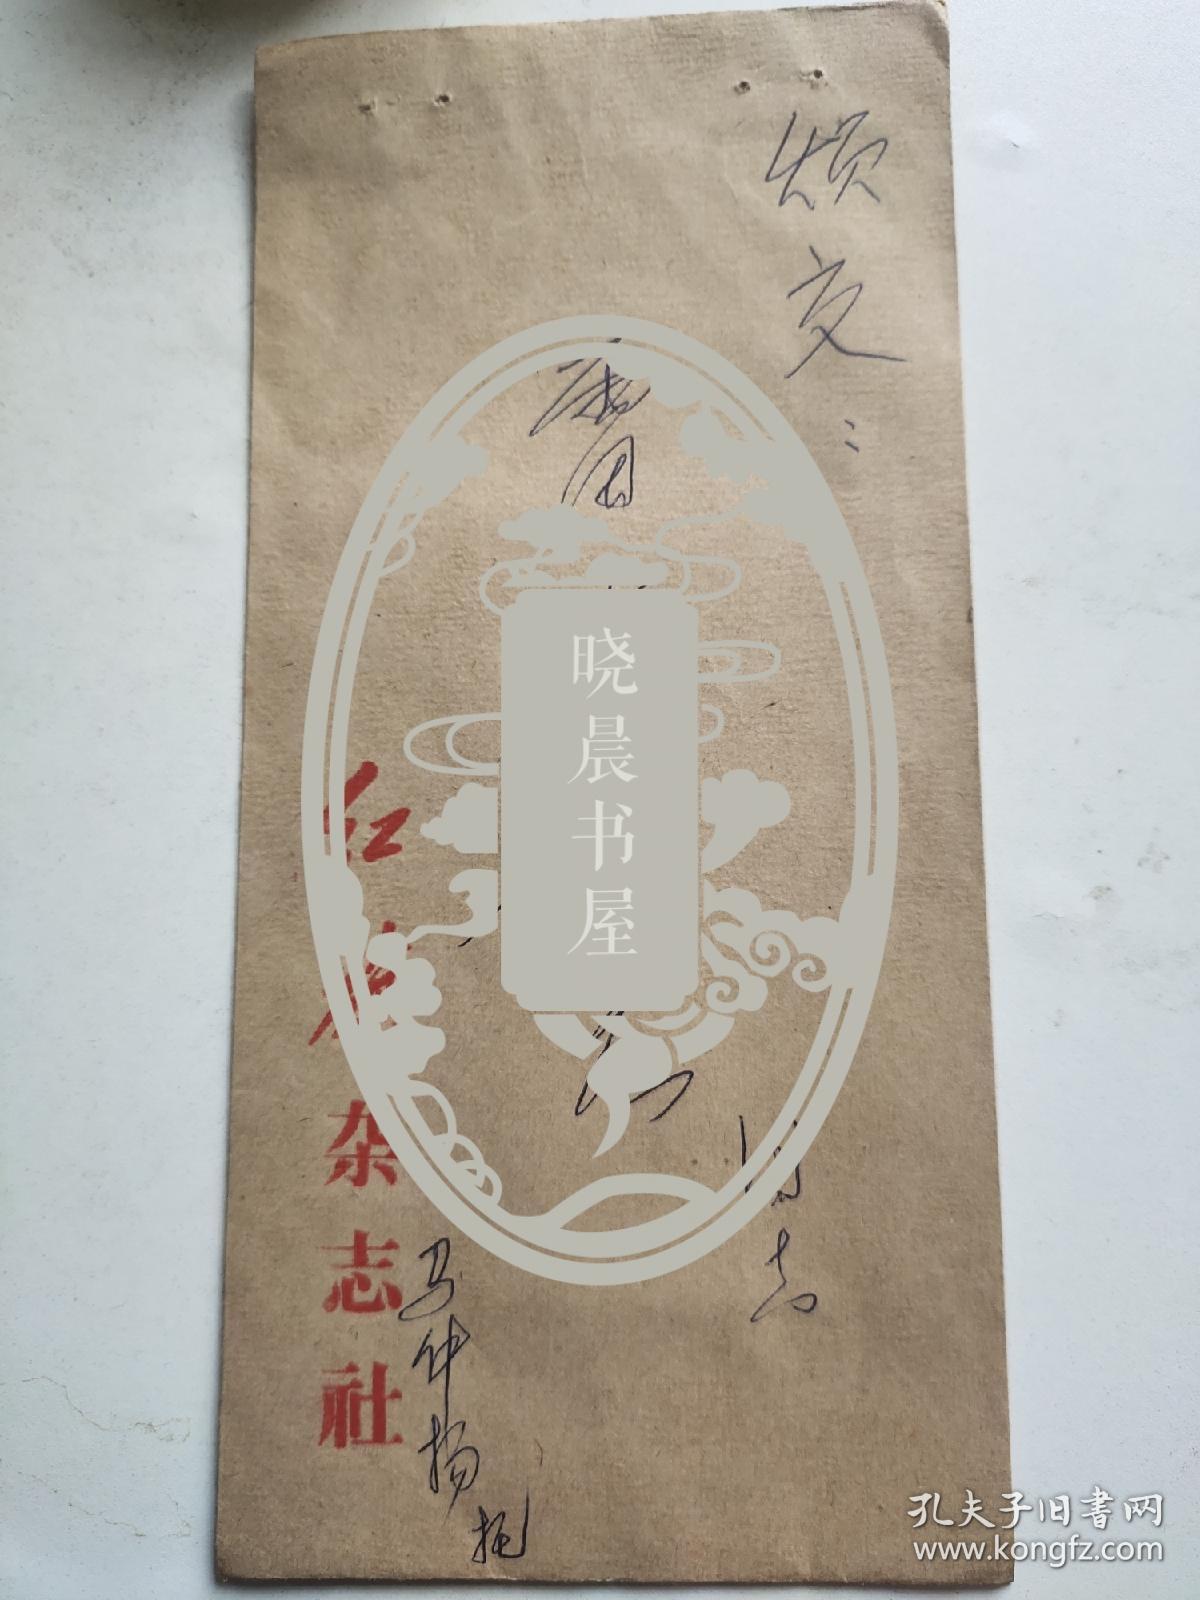 烦交:
同志
晓晨书屋
红旗杂志社
马仲扬托
孔夫子旧书网
www.kongfz.com